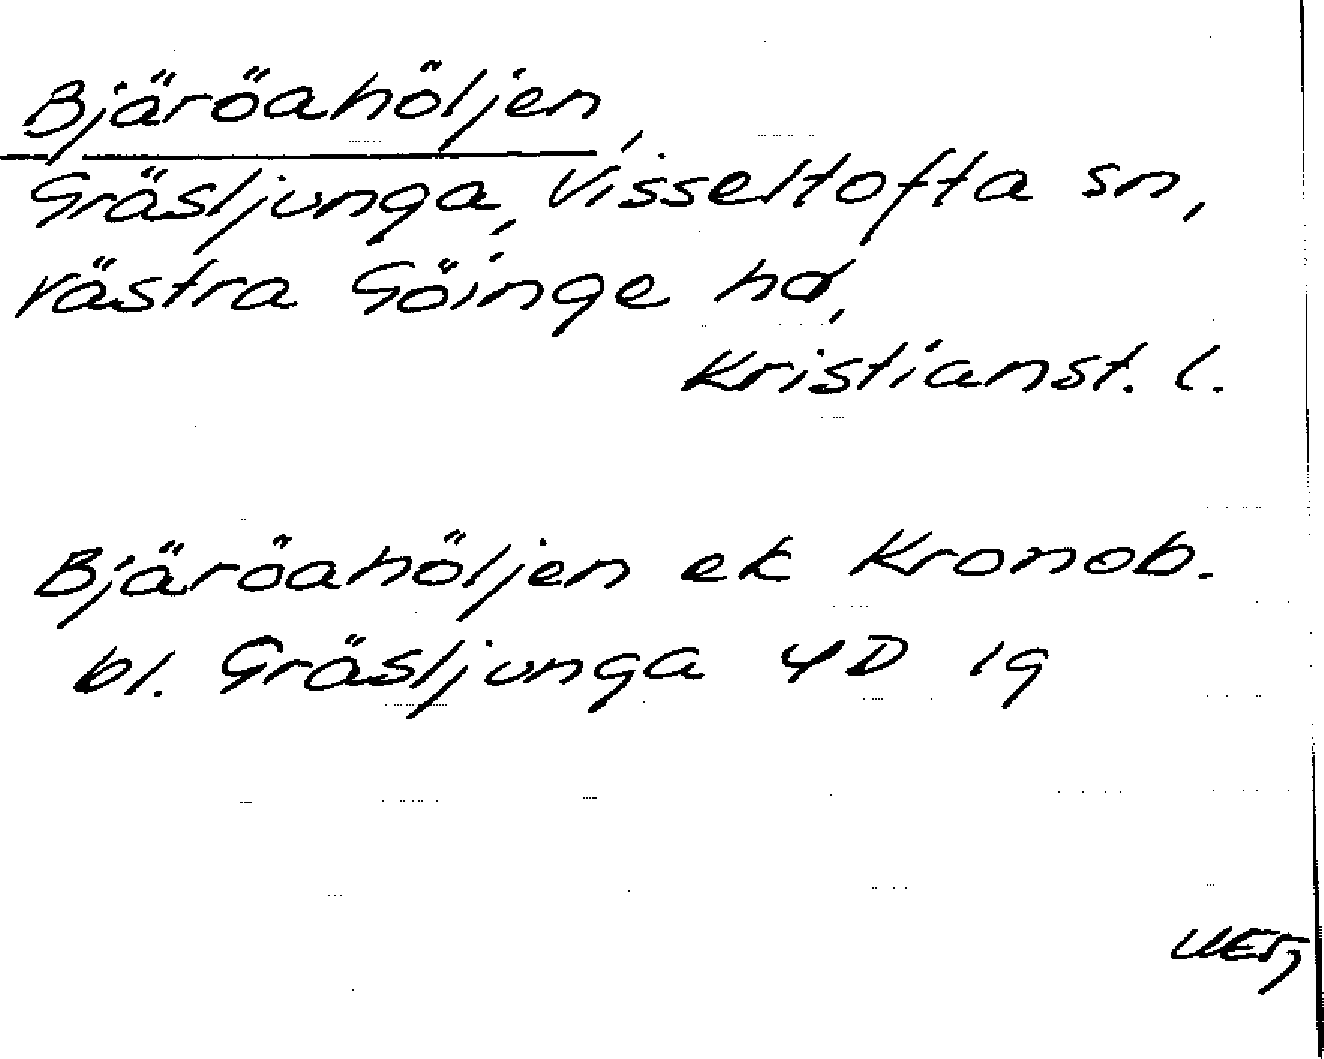 Bjäröahöljen,
Gräsljunga, Visseltofta sn,
västra Göinge hd,
Kristianst. l.
Bjäröahöljen ek Kronob.
bl. Gräsljunga 4D 1g